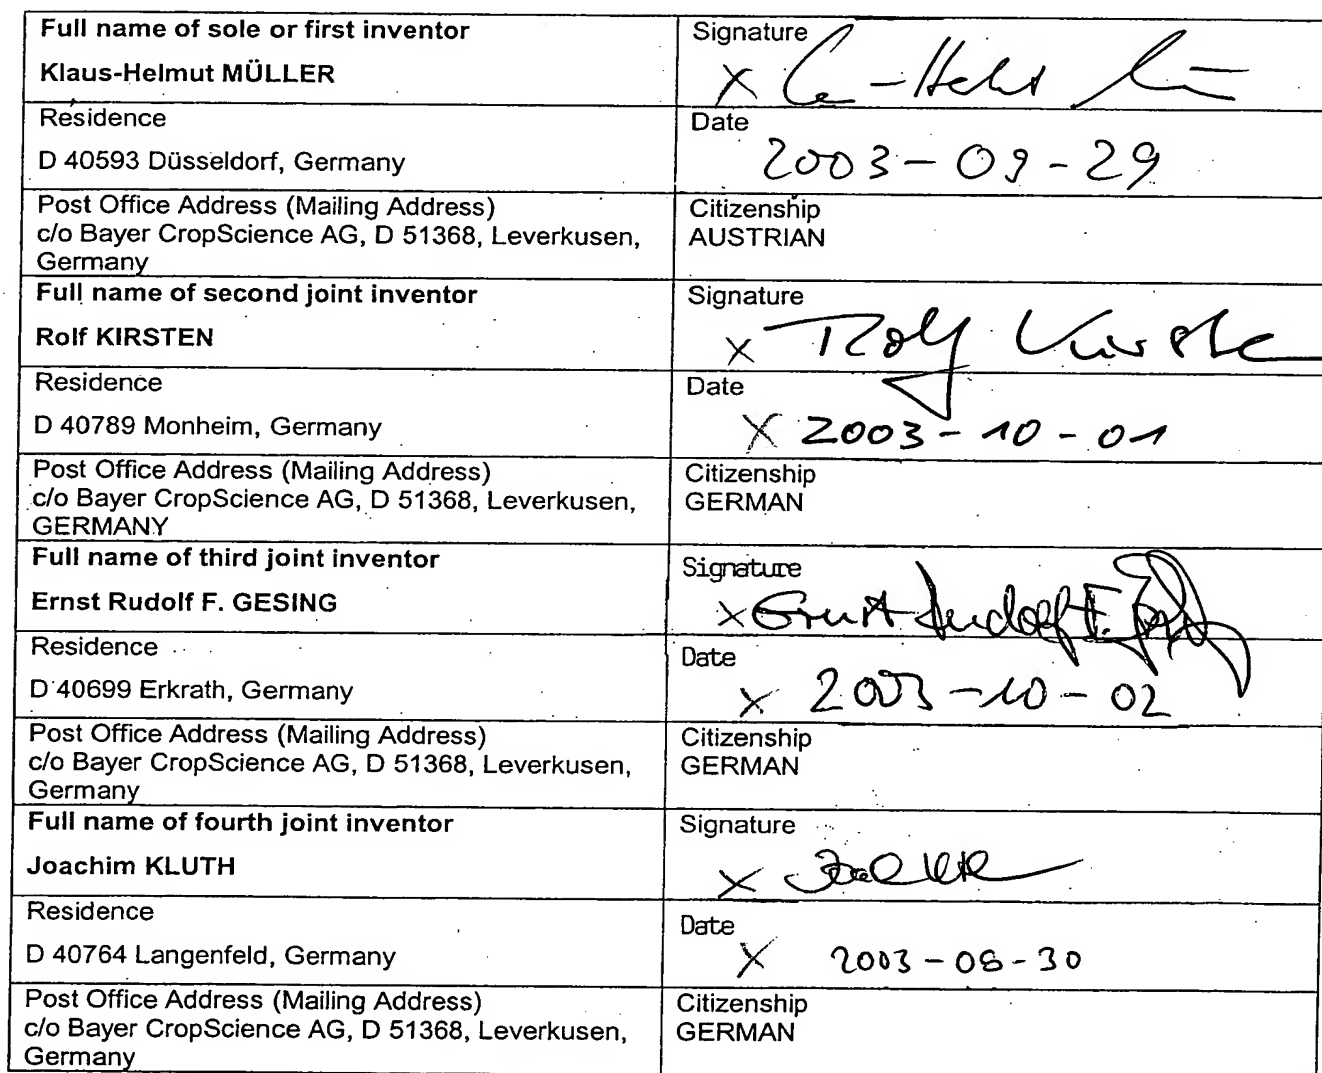 Full name of sole or first inventor
Klaus-Helmut MÜLLER
Signature
X
Residence
D 40593 Düsseldorf, Germany
Date
2003-09-29
Post Office Address (Mailing Address)
c/o Bayer CropScience AG, D 51368, Leverkusen,
Germany
Citizenship
AUSTRIAN
Full name of second joint inventor
Rolf KIRSTEN
Signature
X Rolf Kirsten
Residence
D 40789 Monheim, Germany
Date
X 2003-10-01
Post Office Address (Mailing Address)
c/o Bayer CropScience AG, D 51368, Leverkusen,
GERMANY
Citizenship
GERMAN
Full name of third joint inventor
Ernst Rudolf F. GESING
Signature
X Ernst Rudolf F. Gesing
Residence
D 40699 Erkrath, Germany
Date
X 2003-10-02
Post Office Address (Mailing Address)
c/o Bayer CropScience AG, D 51368, Leverkusen,
Germany
Citizenship
GERMAN
Full name of fourth joint inventor
Joachim KLUTH
Signature
X
Residence
D 40764 Langenfeld, Germany
Date
X
Post Office Address (Mailing Address)
c/o Bayer CropScience AG, D 51368, Leverkusen,
Germany
Citizenship
GERMAN